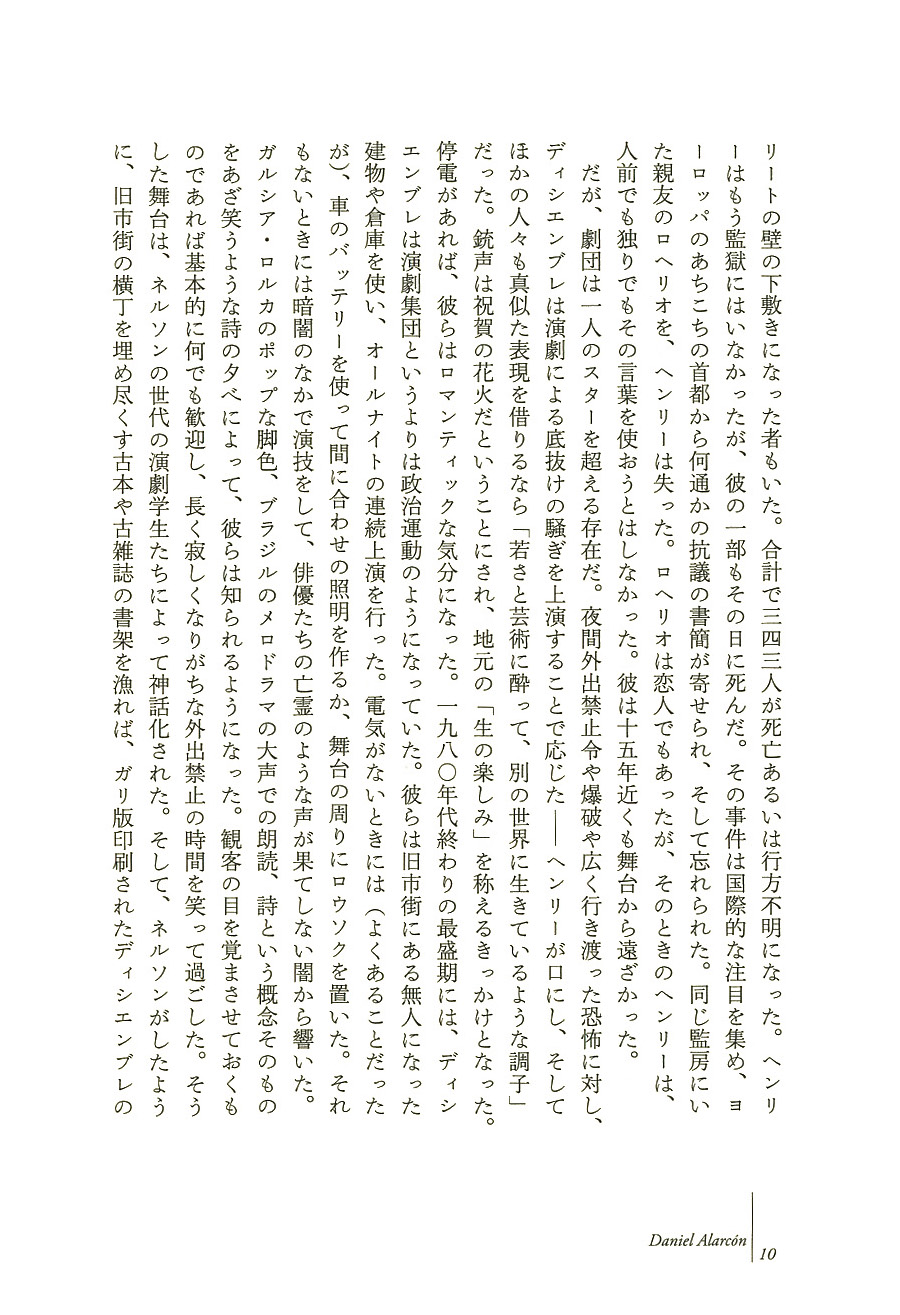 リートの壁の下敷きになった者もいた。合計で三四三人が死亡あるいは行方不明になった。ヘンリ
ーはもう監獄にはいなかったが、彼の一部もその日に死んだ。その事件は国際的な注目を集め、ヨ
ーロッパのあちこちの首都から何通かの抗議の書簡が寄せられ、そして忘れられた。同じ監房にい
た親友のロヘリオを、ヘンリーは失った。ロヘリオは恋人でもあったが、そのときのヘンリーは、
人前でも独りでもその言葉を使おうとはしなかった。彼は十五年近くも舞台から遠ざかった。
　だが、劇団は一人のスターを超える存在だ。夜間外出禁止令や爆破や広く行き渡った恐怖に対し、
ディシエンブレは演劇による底抜けの騒ぎを上演することで応じた――ヘンリーが口にし、そして
ほかの人々も真似た表現を借りるなら「若さと芸術に酔って、別の世界に生きているような調子」
だった。銃声は祝賀の花火だということにされ、地元の「生の楽しみ」を称えるきっかけとなった。
停電があれば、彼らはロマンティックな気分になった。一九八〇年代終わりの最盛期には、ディシ
エンブレは演劇集団というよりは政治運動のようになっていた。彼らは旧市街にある無人になった
建物や倉庫を使い、オールナイトの連続上演を行った。電気がないときには（よくあることだった
が）、車のバッテリーを使って間に合わせの照明を作るか、舞台の周りにロウソクを置いた。それ
もないときには暗闇のなかで演技をして、俳優たちの亡霊のような声が果てしない闇から響いた。
ガルシア・ロルカのポップな脚色、ブラジルのメロドラマの大声での朗読、詩という概念そのもの
をあざ笑うような詩の夕べによって、彼らは知られるようになった。観客の目を覚まさせておくも
のであれば基本的に何でも歓迎し、長く寂しくなりがちな外出禁止の時間を笑って過ごした。そう
した舞台は、ネルソンの世代の演劇学生たちによって神話化された。そして、ネルソンがしたよう
に、旧市街の横丁を埋め尽くす古本や古雑誌の書架を漁れば、ガリ版印刷されたディシエンブレの
Daniel Alarcón
10